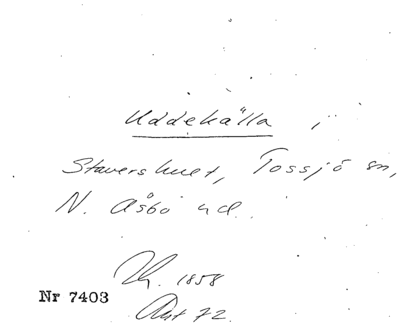 Uddekälla i
Stavershult, Tossjö sn,
N. Åsbo hd.
1858
Nr 7403
Akt 72